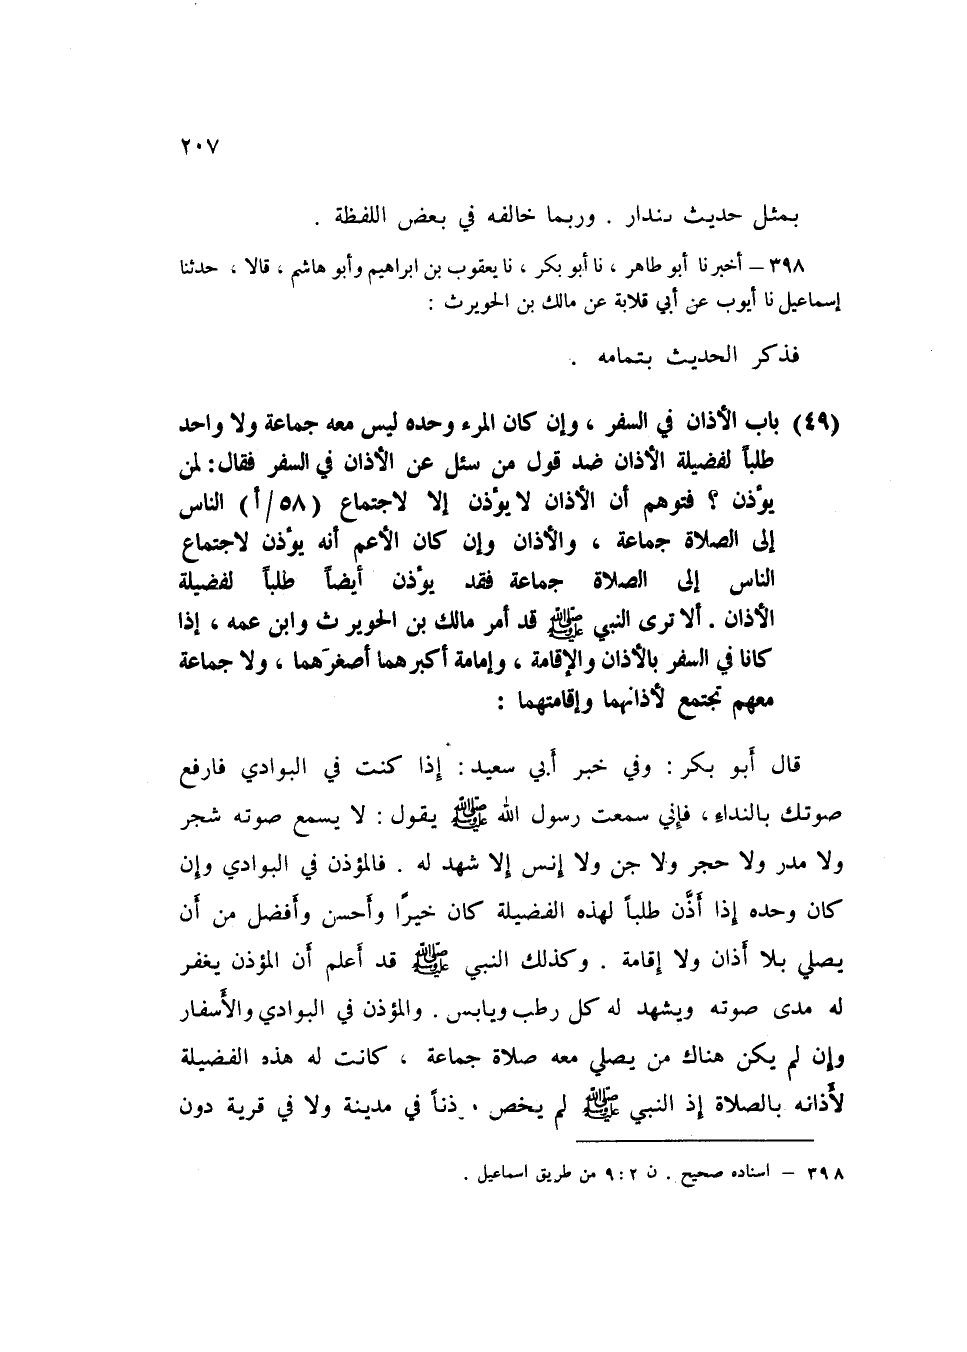 ٢٠٧
بمثل حديث بندار . وربما خالفه في بعض اللفظة .
٣٩٨ – أخبرنا أبو طاهر ، نا أبو بكر ، نا يعقوب بن ابراهيم وأبو هاشم ، قالا ، حدثنا
إسماعيل نا أيوب عن أبي قلابة عن مالك بن الحويرث :
فذكر الحديث بتمامه .
(٤٩) باب الأذان في السفر ، وإن كان المرء وحده ليس معه جماعة ولا واحد
طلباً لفضيلة الأذان ضد قول من سئل عن الأذان في السفر فقال : لمن
يؤذن ؟ فتوهم أن الأذان لا يؤذن إلا لاجتماع (٥٨/أ) الناس
إلى الصلاة جماعة ، والأذان وإن كان الأعم أنه يؤذن لاجتماع
الناس إلى الصلاة جماعة فقد يؤذن أيضاً طلباً لفضيلة
الأذان . ألا ترى النبي ﷺ قد أمر مالك بن الحويرث وابن عمه ، إذا
كانا في السفر بالأذان والإقامة ، وإمامة أكبرهما أصغرَهما ، ولا جماعة
معهم تجتمع لأذانهما وإقامتهما :
قال أبو بكر : وفي خبر أبي سعيد : إذا كنت في البوادي فارفع
صوتك بالنداء ، فإني سمعت رسول الله ﷺ يقول : لا يسمع صوته شجر
ولا مدر ولا حجر ولا جن ولا إنس إلا شهد له . فالمؤذن في البوادي وإن
كان وحده إذا أذَّن طلباً لهذه الفضيلة كان خيرًا وأحسن وأفضل من أن
يصلي بلا أذان ولا إقامة . وكذلك النبي ﷺ قد أعلم أن المؤذن يغفر
له مدى صوته ويشهد له كل رطب ويابس . والمؤذن في البوادي والأسفار
وإن لم يكن هناك من يصلي معه صلاة جماعة ، كانت له هذه الفضيلة
لأذانه بالصلاة إذ النبي ﷺ لم يخص في مدينة ولا في قرية دون
٣٩٨ – اسناده صحيح . ن ٢ : ٩ من طريق اسماعيل .